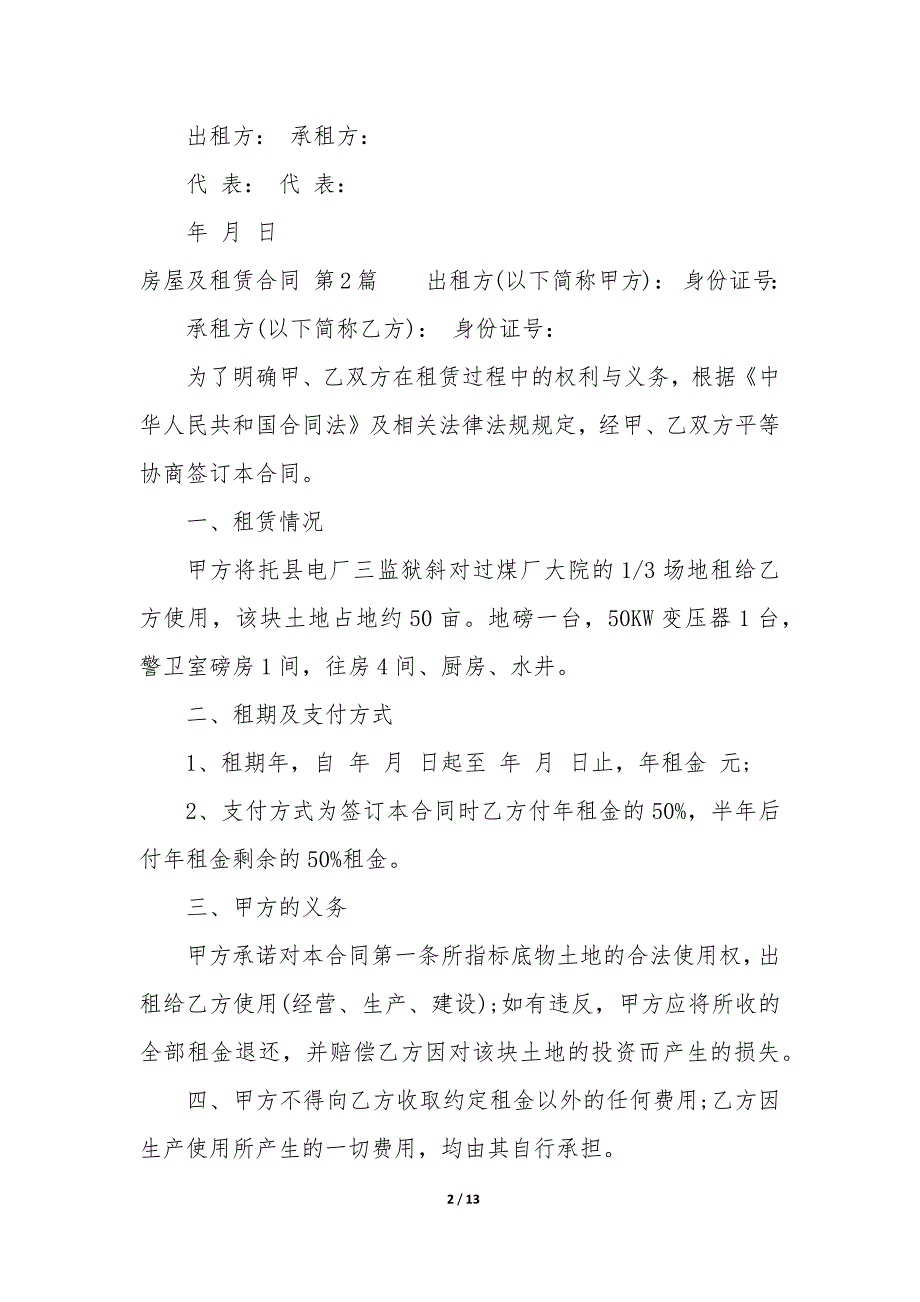 出租方： 承租方：
代 表： 代 表：
年 月 日
房屋及租赁合同 第2篇 出租方(以下简称甲方)： 身份证号：
承租方(以下简称乙方)： 身份证号：
为了明确甲、乙双方在租赁过程中的权利与义务，根据《中
华人民共和国合同法》及相关法律法规规定，经甲、乙双方平等
协商签订本合同。
一、租赁情况
甲方将托县电厂三监狱斜对过煤厂大院的1/3场地租给乙
方使用，该块土地占地约50亩。地磅一台，50KW变压器1台，
警卫室磅房1间，往房4间、厨房、水井。
二、租期及支付方式
1、租期年，自 年 月 日起至 年 月 日止，年租金 元;
2、支付方式为签订本合同时乙方付年租金的50%，半年后
付年租金剩余的50%租金。
三、甲方的义务
甲方承诺对本合同第一条所指标底物土地的合法使用权，出
租给乙方使用(经营、生产、建设);如有违反，甲方应将所收的
全部租金退还，并赔偿乙方因对该块土地的投资而产生的损失。
四、甲方不得向乙方收取约定租金以外的任何费用;乙方因
生产使用所产生的一切费用，均由其自行承担。
2 / 13